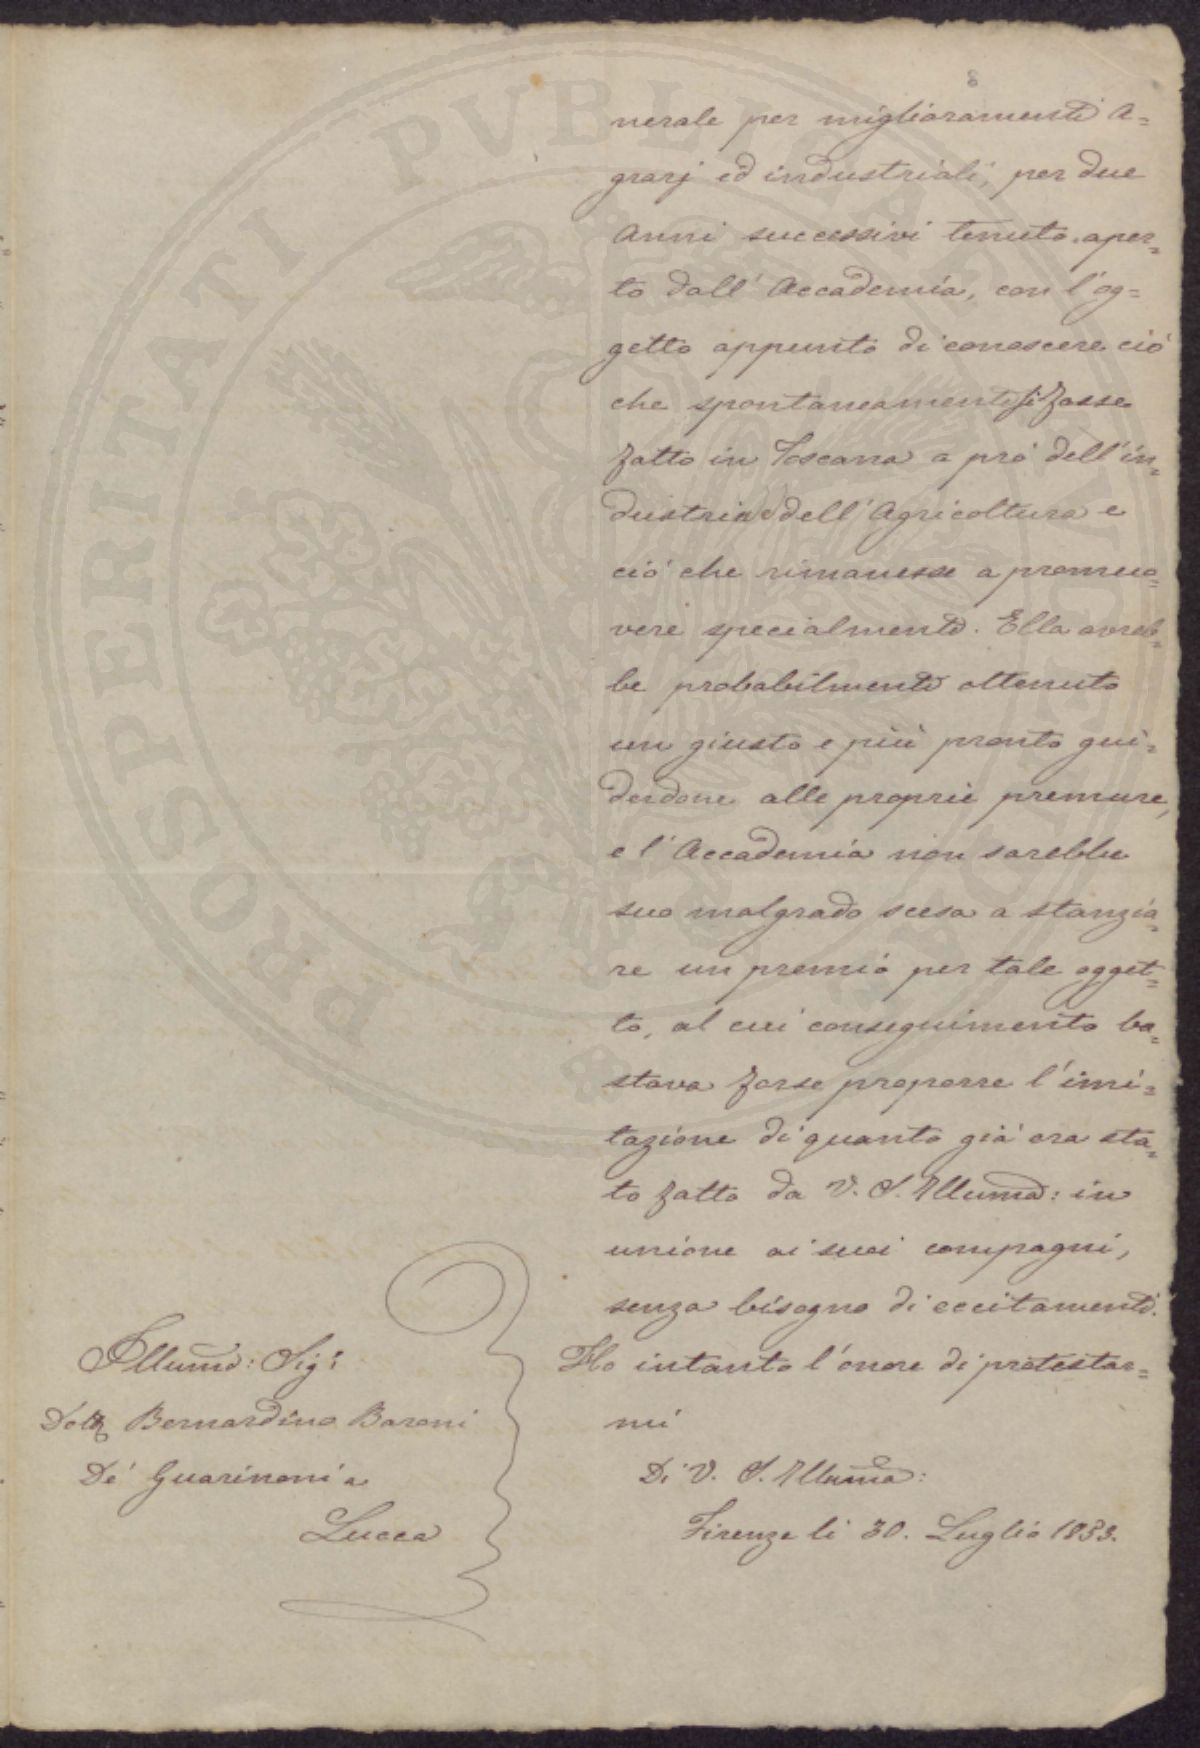 8
nerale per miglioramenti A=
grarj ed industriali, per due
Anni successivi tenuto aper=
to dall' Accademia, con l'og=
getto appunto di conoscere ciò
che spontaneamente si fosse
fatto in Toscana a prò dell'in=
dustria e dell'Agricoltura e
ciò che rimanesse a promuo=
vere specialmente. Ella avreb=
be probabilmente ottenuto
un giusto e più pronto gui=
derdone alle proprie premure,
e l'Accademia non sarebbe
suo malgrado scesa a stanzia=
re un premio per tale ogget=
to, al cui conseguimento ba=
stava forse proporre l'imi=
tazione di quanto già era sta=
to fatto da V. S. Illuma: in
unione ai suoi compagni,
senza bisogno di eccitamenti.
Ho intanto l'onore di protestar=
mi
Di V. S. Illuma:
Firenze li 30. Luglio 1853.
Illumo: Sigr
Dott Bernardino Baroni
De' Guarinoni a
Lucca
PROSPERITATI PVBLICAE AVGENDAE